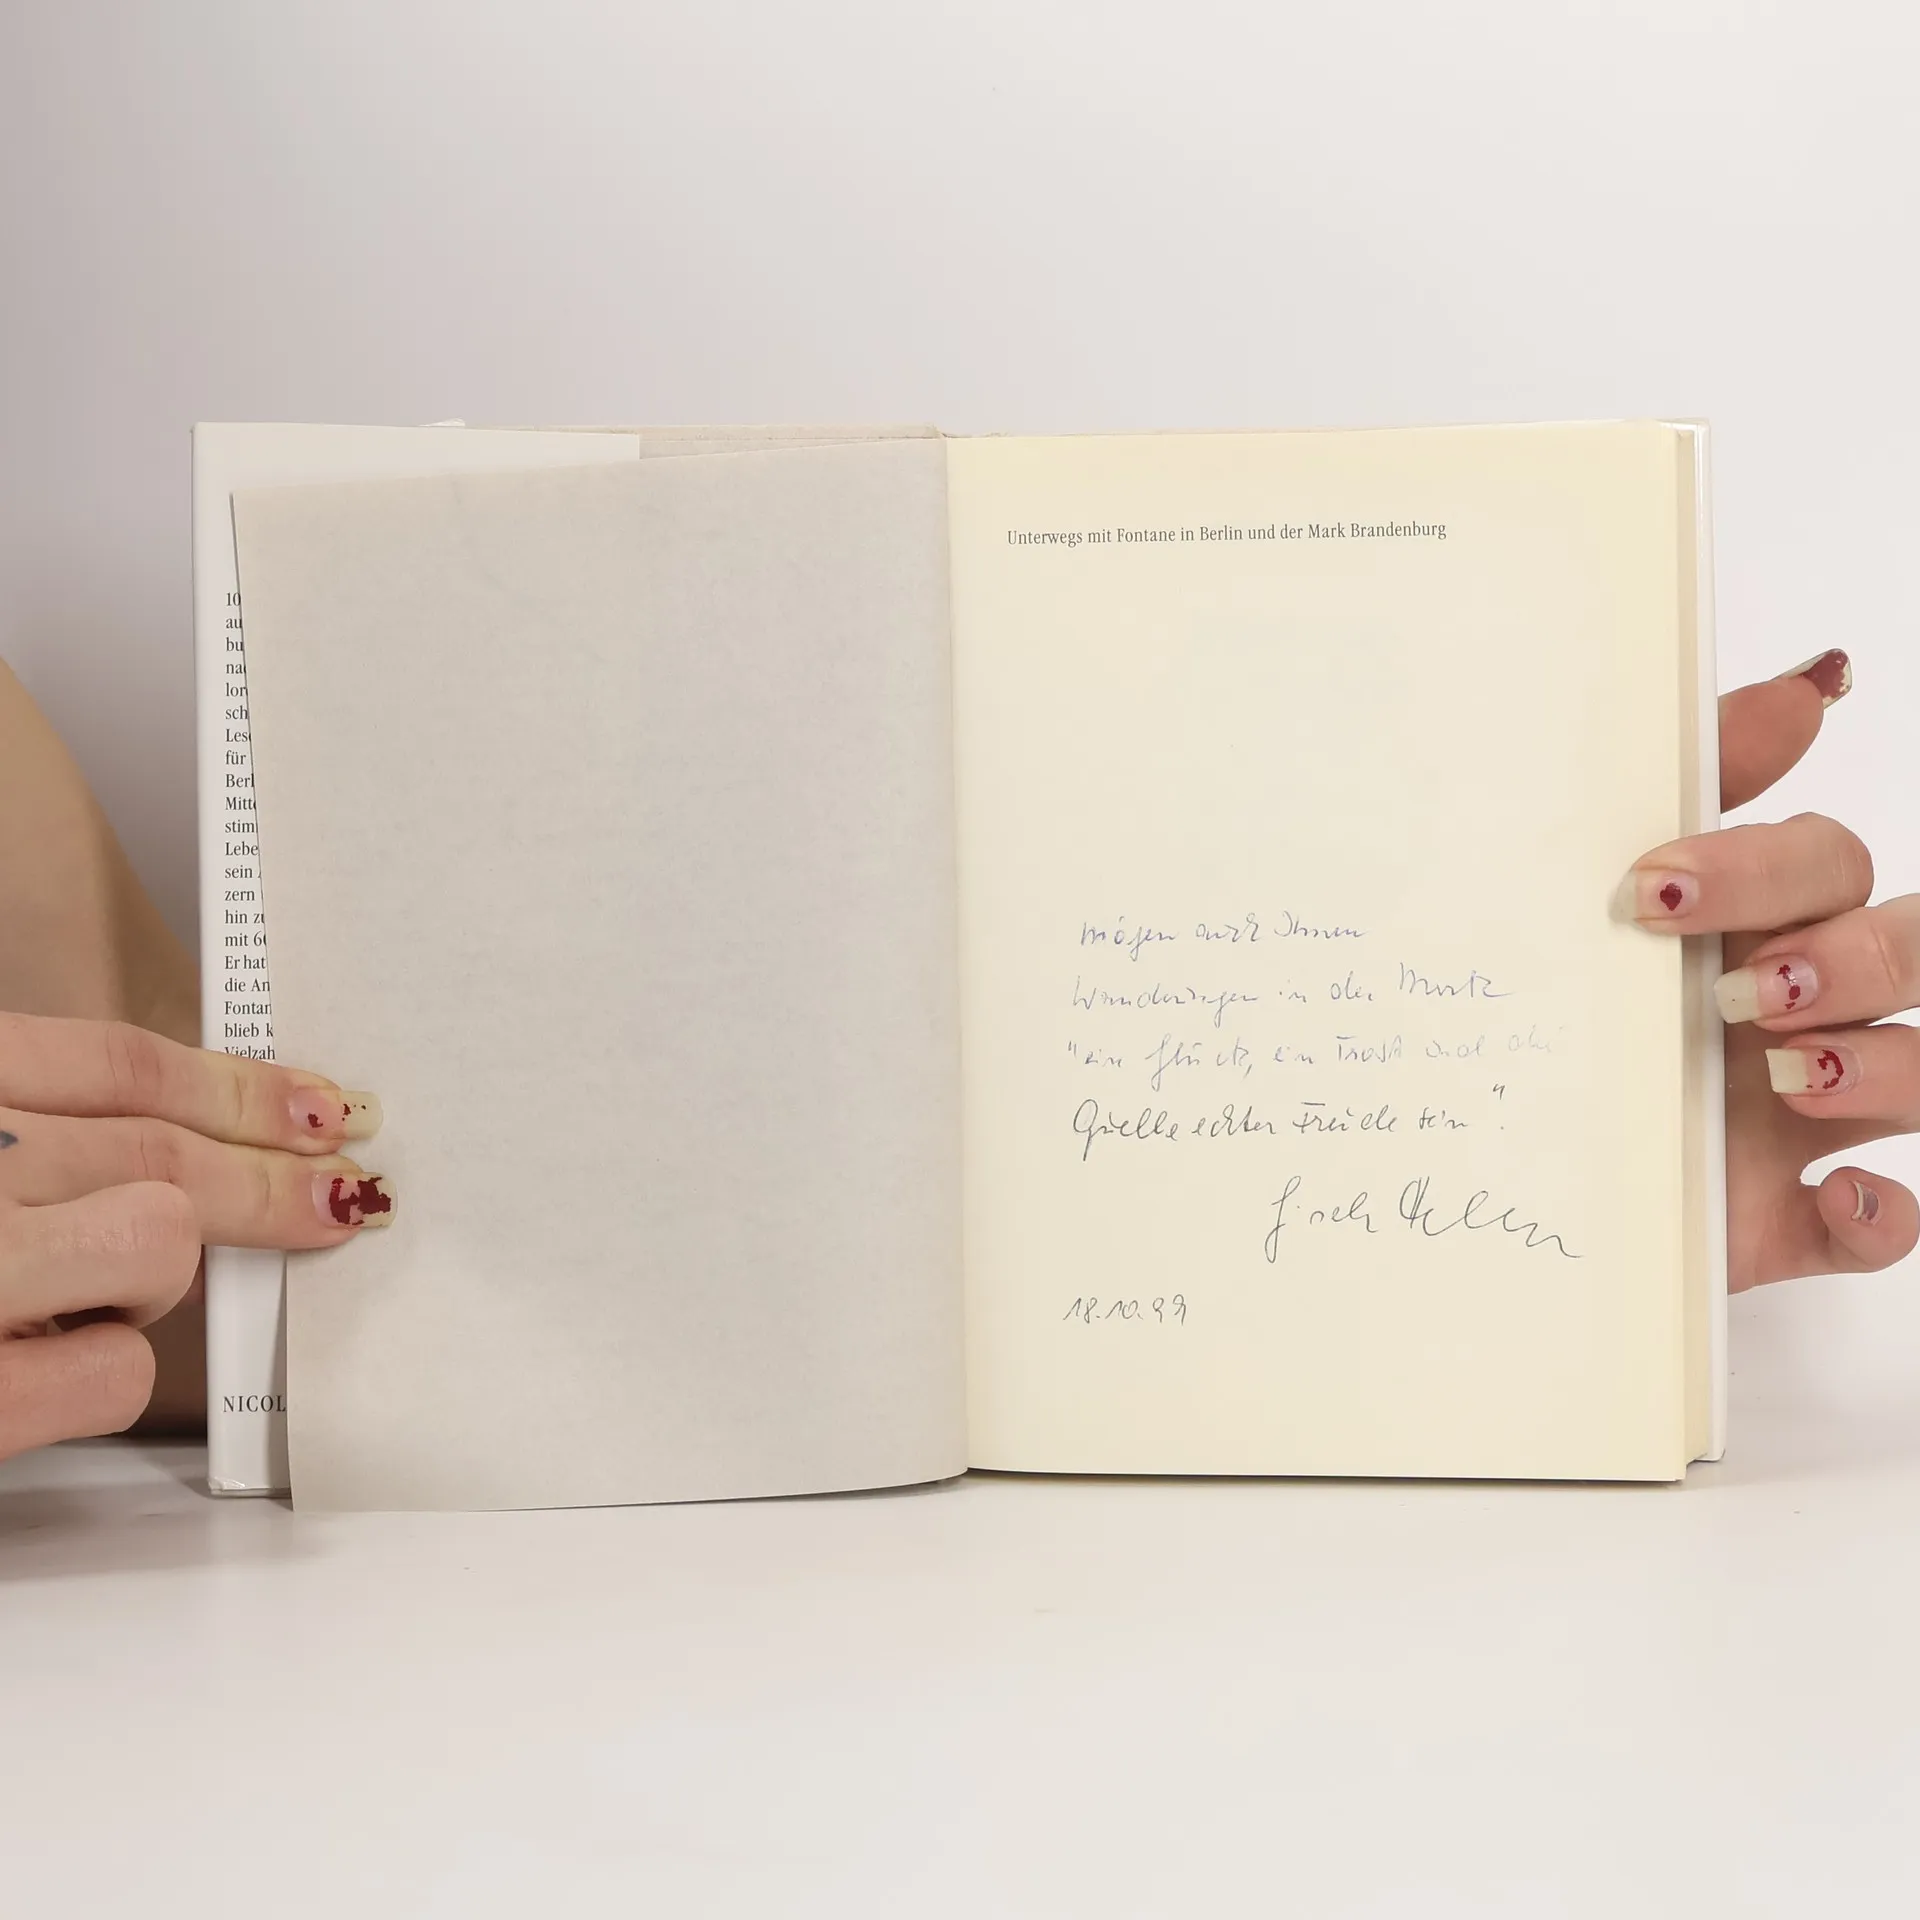 10
au
bu
na
lor
sch
Les
für
Berl
Mitt
stim
Lebe
sein
zern
hin zu
mit 60
Er hat
die An
Fontan
blieb k
Vielzah
NICOL
Unterwegs mit Fontane in Berlin und der Mark Brandenburg
mögen auch Ihnen
Wanderungen in der Mark
"ein Glück, ein Trost und die
Quelle echter Freude sein".
Gisela Heller
18.10.99